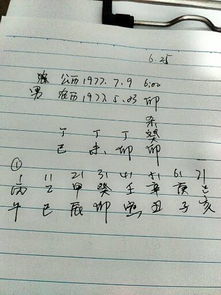 6.25
公历 1977.7.9 6:00
男 农历 1977.5.23 卯
癸
丁 丁 丁 癸
巳 未 卯 卯
①
1 11 21 31 41 51 61 71
丙 乙 甲 癸 壬 辛 庚 己
午 巳 辰 卯 寅 丑 子 亥